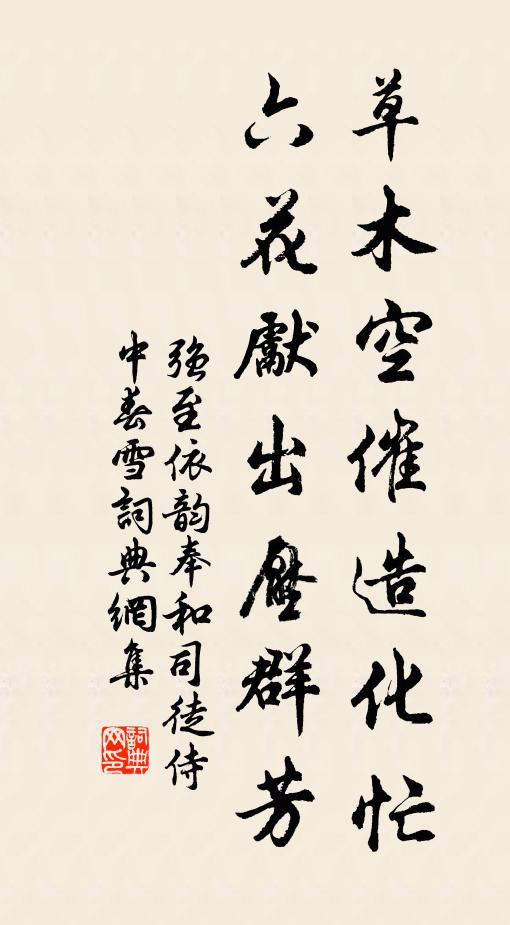 草木空催造化忙
六花獻出壓群芳
强至依韵奉和司徒侍
中春雪詞典網集
詞典网印